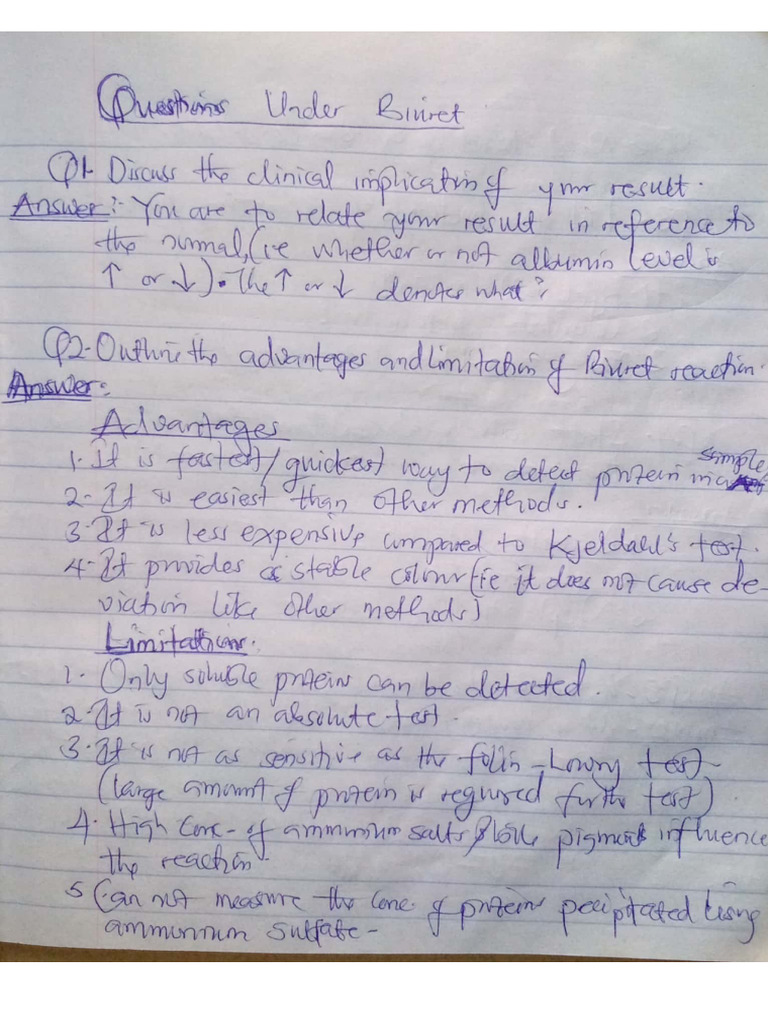 Questions Under Biuret
Q1. Discuss the clinical implication of your result.
Answer:- You are to relate your result in reference to
the normal, (ie whether or not albumin level is
↑ or ↓). The ↑ or ↓ denotes what?
Q2. Outline the advantages and limitation of Biuret reaction.
Answer:
Advantages
1. It is fastest/quickest way to detect protein in a simple
2- It is easiest than other methods.
3. It is less expensive compared to Kjeldahl's test.
4- It provides a stable colour (ie it does not cause de-
viation like other methods)
Limitations.
1. Only soluble protein can be detected.
2. It is not an absolute test.
3. It is not as sensitive as the folin-Lowry test-
(large amount of protein is required for the test).
4. High Conc- of ammonium salts, bile pigment influence
the reaction.
5 Can not measure the Conc. of protein pecipitated using
ammonium sulfate-